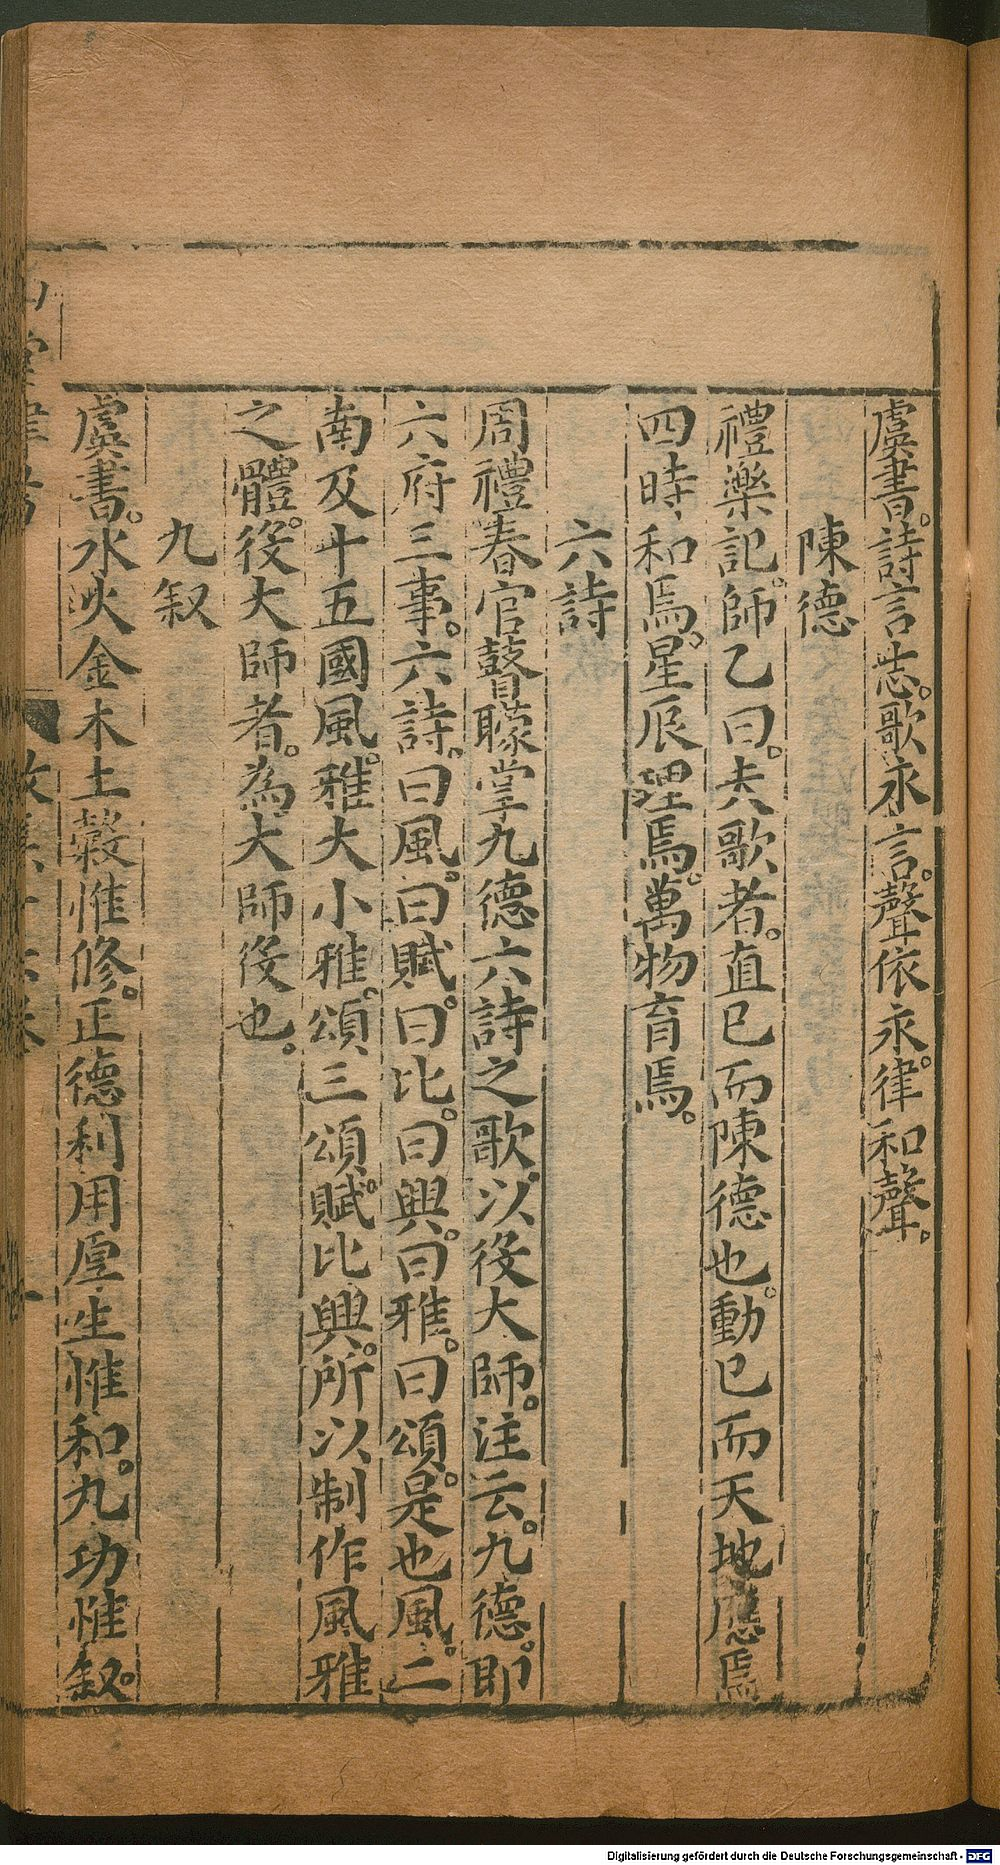 虞書。詩言志。歌永言。聲依永。律和聲。
陳德
禮樂記。師乙曰。夫歌者。直己而陳德也。動己而天地應焉
四時和焉。星辰理焉。萬物育焉。
六詩
周禮春官瞽矇掌九德六詩之歌。以役大師。注云。九德。即
六府三事。六詩。曰風。曰賦。曰比。曰興。曰雅。曰頌。是也風。二
南及十五國風。雅大小雅。頌三頌。賦比興。所以制作風雅
之體。役大師者。為大師役也。
九叙
虞書。水火金木土穀惟修。正德利用厚生惟和。九功惟叙。
Digitalisierung gefördert durch die Deutsche Forschungsgemeinschaft - DFG